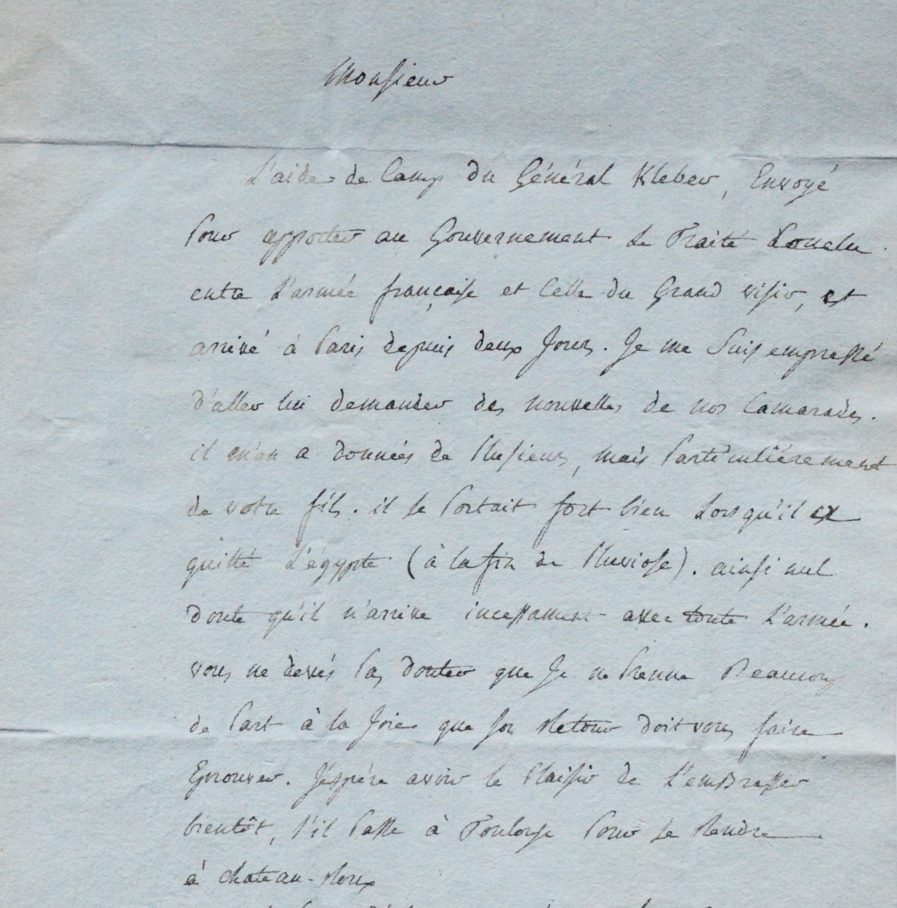 Monsieur
L'aide de Camp du Général Kleber, Envoyé
Pour apporter au Gouvernement le Traité Conclu
entre L'armée française et Celle du Grand visir, est
arrivé à Paris depuis deux Jours. Je me Suis empressé
d'aller lui demander des nouvelles de nos Camarades.
il m'en a données de Plusieurs, mais Particulièrement
de votre fils. il se Portait fort bien Lorsqu'il a
quitté L'égypte (à la fin de Pluviose). ainsi nul
doute qu'il n'arrive incessament avec toute L'armée.
vous ne devés Pas douter que Je ne Prenne Beaucoup
de Part à la Joie que son Retour doit vous faire
Eprouver. J'espére avoir le Plaisir de L'emBrasser
bientôt, s'il Passe à Toulouse Pour se Rendre
à chateau-Roux